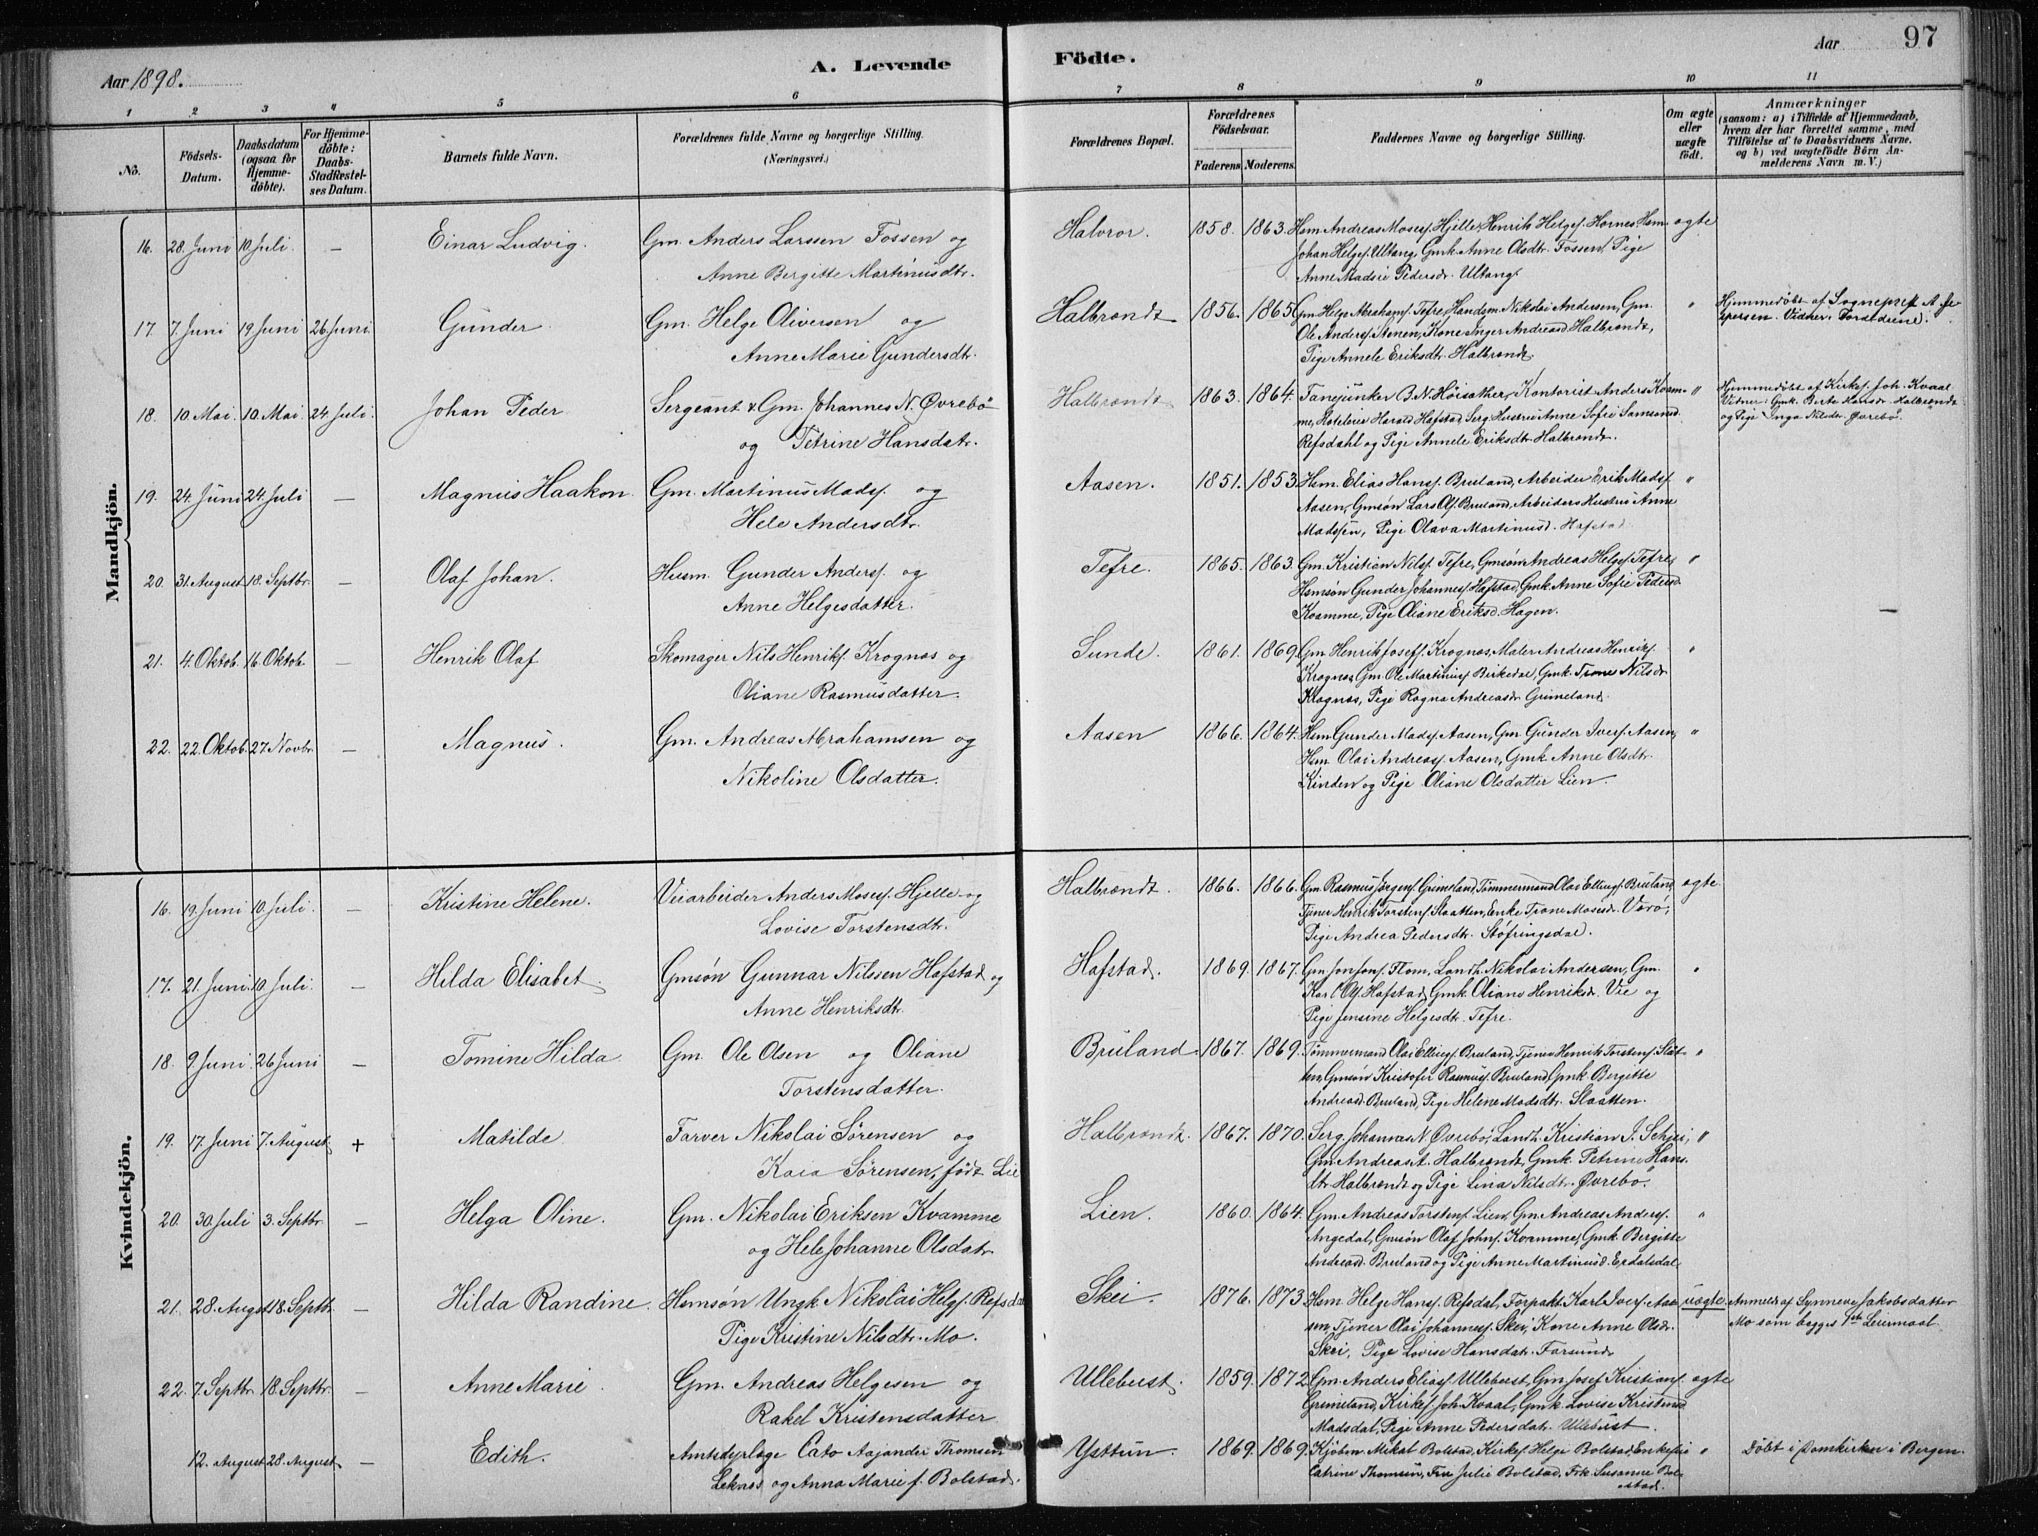 Aar 1898.
A. Levende
Födte.
Aar
97
1
2
3
4
5
6
7
8
9
10
11
No.
Födsels-
Datum.
Daabsdatum
(ogsaa for
Hjemme-
döbte).
For Hjemme-
döbte:
Daabs-
Stadfæstel-
ses Datum.
Barnets fulde Navn.
Forældrenes fulde Navne og borgerlige Stilling.
(Næringsvei.)
Forældrenes Bopæl.
Forældrenes
Födselsaar.
Faderens.
Moderens.
Faddernes Navne og borgerlige Stilling.
Om ægte
eller
uægte
födt.
Anmærkninger
(saasom: a) i Tilfælde af Hjemmedaab,
hvem der har forrettet samme, med
Tilföielse af to Daabsvidners Navne,
og b) ved uægtefödte Börn An-
melderens Navn m. V.)
Mandkjön.
16. 28. Juni 10. Juli. — Einar Ludvig. Gm. Anders Larssen Fossen og
Anne Bergitte Martinusdtr.
Halvror. 1858. 1863. Hsm. Andreas Mosesf. Hjelle, Henrik Helgef. Hornes Hsm. ægte
Johan Helgef. Ultang, Gmk. Anne Olsdtr. Fossen, Pige
Anne Madsie Pedersdr. Ultang.
17. 7. Juni 19 Juni 26. Juni. Gunder. Gm. Helge Oliversen og
Anne Marie Gundersdtr.
Halbrendt 1856. 1865. Gm. Helge Abrahamf. Tefre, Handsm. Nikolai Andersen, Gm. "
Ole Andersf. Stenen, Kone Inger Andreasd. Halbrendt,
Pige Annele Eriksdtr. Halbrendt.
Hjemmedöbt af Sognepræst A. Je-
persen. Vidner: Forældrene.
18. 10. Mai. 10. Mai 24. Juli. Johan Peder Sergeant & Gm. Johannes N. Øvrebö
og Petrine Hansdatr.
Halbrendt 1863. 1864. Fanejunker B. N. Höisæther, Kontorist Anders Kvam- "
me, Hoteleier Harald Hafstad, Serg. Hustru Anne Sofie Samsonsd.
Refsdahl og Pige Annele Eriksdtr. Halbrendt.
Hjemmedöbt af Kirkes. Joh. Kvaal
Vidner: Gmk. Birte Hansdr. Halbrendt
og Pige Inga Nilsdr. Øvrebö.
19. 24. Juni 24. Juli — Magnus Haakon. Gm. Martinus Madsf. og
Hele Andersdtr.
Aasen. 1851. 1853. Hsm. Elias Hansf. Bruland, Arbeider Erik Madsf. "
Aasen, Gmsön Lars Olf. Bruland, Arbeiders Hustru Anne
Madssen, Pige Olava Martinusd. Hafstad.
20. 31. August. 18. Septbr. — Olaf Johan. Husm. Gunder Andersf. og
Anne Helgesdatter.
Tefre. 1865. 1863. Gm. Kristian Nilsf. Tefre, Gmsön Andreas Helgef. Tefre, "
Hsmsön Gunder Johannesf. Hafstad, Gmk. Anne Sofie Pedersd.
Kvamme, Pige Oliane Eriksd. Hagen.
21. 4. Oktob. 16. Oktob. — Henrik Olaf Skomager Nils Henrikf. Krognes og
Oliane Rasmusdatter.
Sunde. 1861. 1869. Gm. Henrik Joseff. Krognes, Maler Andreas Henrikf. "
Krognes, Gm. Ole Martinusf. Birkedal, Gmk. Trone Nilsdr.
Krognes, Pige Ragna Andreasdr. Grimeland.
22. 22. Oktob. 27. Novbr. — Magnus. Gm. Andreas Abrahamsen og
Nikoline Olsdatter.
Aasen 1866. 1864. Hsm. Gunder Madsf. Aasen, Gm. Gunder Iverf. Aasen, "
Hsm. Olai Andreasf. Aasen, Gmk. Anne Olsdtr.
Kinden og Pige Oliane Olsdatter Lien.
Kvindekjön.
16. 19. Juni 10. Juli. — Kristine Helene. Veiarbeider Anders Mosesf. Hjelle og
Lovise Torstensdtr.
Halbrendt. 1866. 1866. Gm. Rasmus Jörgenf. Grimeland, Tömmermand Olai Ellingf. Bruland, ægte
Tjener Henrik Torstenf. Slaatten, Enke Trone Mosesdr. Værö,
Pige Andrea Pedersdtr. Stöfringsdal.
17. 21. Juni. 10. Juli. — Hilda Elisabet. Gmsön Gunnar Nilssen Hafstad og
Anne Henriksdtr.
Hafstad. 1869. 1867. Gm. Jon Jonf. Flom, Landh. Nikolai Andersen, Gm. "
Kar. Olf. Hafstad, Gmk. Oliane Henriksdr. Vie og
Pige Jensine Helgesdtr. Tefre.
18. 9. Juni. 26 Juni — Tomine Hilda Gm. Ole Olsen og Oliane
Torstensdatter.
Bruland. 1867. 1869. Tömmermand Olai Ellingf. Bruland, Tjener Henrik Torstenf. Slaat- "
ten, Gmsön Kristofer Rasmusf. Bruland, Gmk. Bergitte
Andreasd. Bruland, Pige Helene Madsdtr. Slaatten.
19. 17. Juni 7. August + Matilde. Farver Nikolai Sörensen og
Kaia Sörensen, födt Lie
Halbrendt. 1867. 1870. Serg. Johannes N. Øvrebö, Landh. Kristian J. Schei, "
Gm. Andreas A. Halbrendt, Gmk. Petrine Hans-
dtr. Halbrendt og Pige Lina Nilsdtr. Øvrebö.
20. 30. Juli 3. Septbr. — Helga Oline. Gm. Nikolai Eriksen Kvamme
og Hele Johanne Olsdatr.
Lien. 1860. 1864. Gm. Andreas Torstenf. Lien, Gm. Andreas Andersf. "
Angedal, Gmsön Olaf Johnf. Kvamme, Gmk. Bergitte
Andreasd. Bruland og Pige Anne Martinusd. Erdalsdal.
21. 28. August 18. Septbr. — Hilda Randine. Hsmsön Ungk. Nikolai Helgf. Refsdal
Pige Kristine Nilsdtr. Mo.
Skei 1876. 1873. Hsm. Helge Hansf. Refsdal, Forpakt. Karl Iverf. Aas- uægte.
sen, Tjener Olai Johannesf. Skei, Kone Anne Olsdr.
Skei, Pige Lovise Hansdatr. Forsund.
Anmeldt af Synneve Jakobsdatter
Mo som begges 1ste Leiermaal.
22. 7. Septbr. 18. Septbr. — Anne Marie Gm. Andreas Helgesen og
Rakel Kristensdatter
Ulleberst. 1859. 1872. Gm. Anders Eliasf. Ulleberst, Gm. Josef Kristianf. ægte
Grimeland, Kirkes. Joh. Kvaal, Gmk. Lovise Kristensd.
Madsdal, Pige Anne Pedersdatr. Ullebust.
12. August. 28. August. — Edith. Amtsdyrlæge Cato Aajander Thomsen
Leknes og Anna Marie f. Bolstad.
Ysttun. 1869. 1869. Kjöbm. Mikal Bolstad, Kirkes. Helge Bolstad, Enkefru "
Catrine Thomsen, Fru Julie Bolstad, Frk. Susanne Bol-
stad.
Döbt i Domkirken i Bergen.